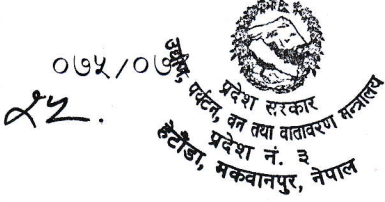 ०७५/०७
२५.
प्रदेश सरकार
उद्योग, पर्यटन, वन तथा वातावरण मन्त्रालय
प्रदेश नं. ३
हेटौंडा, मकवानपुर, नेपाल